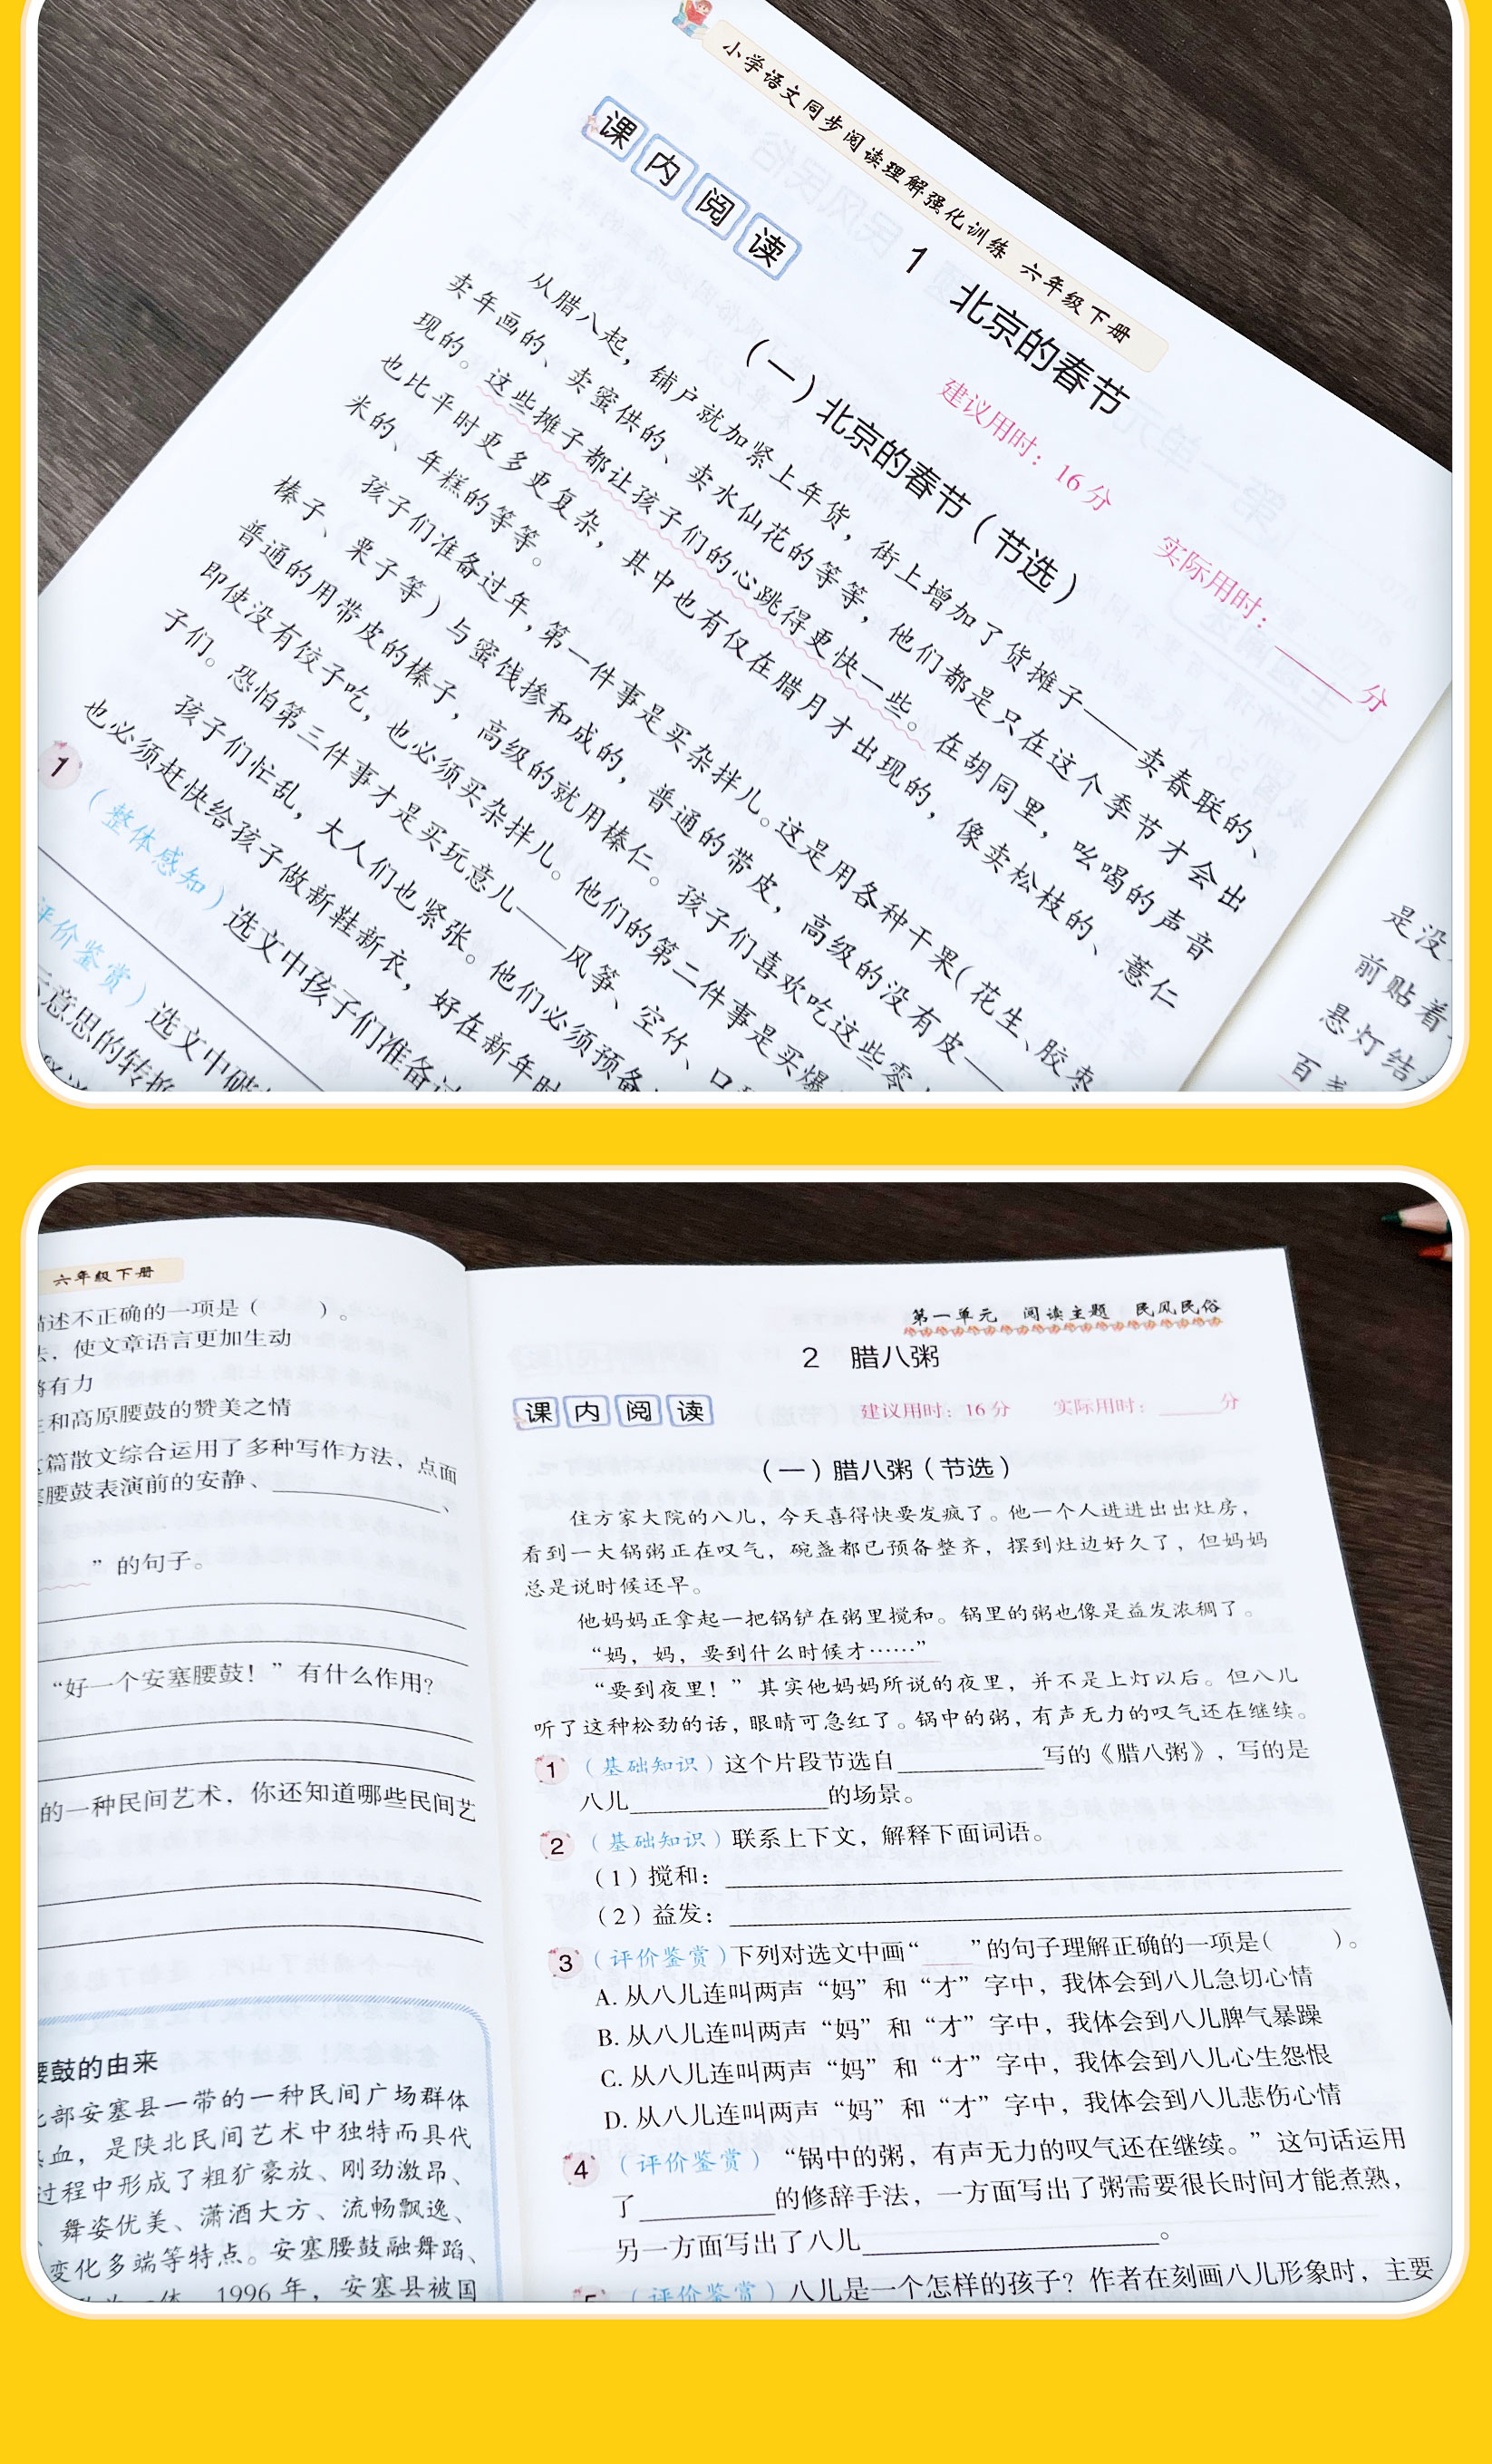 小学语文同步阅读理解强化训练 六年级下册
课内阅读
1 北京的春节
建议用时：16分 实际用时：______分
（一）北京的春节（节选）
从腊八起，铺户就加紧上年货，街上增加了货摊子——卖春联的、
卖年画的、卖蜜供的、卖水仙花的等等，他们都是只在这个季节才会出
现的。这些摊子都让孩子们的心跳得更快一些。在胡同里，吆喝的声音
也比平时更多更复杂，其中也有仅在腊月才出现的，像卖松枝的、薏仁
米的、年糕的等等。
孩子们准备过年，第一件事是买杂拌儿。这是用各种干果（花生、胶枣、
榛子、栗子等）与蜜饯掺和成的，普通的带皮，高级的没有皮——
普通的用带皮的榛子，高级的就用榛仁。孩子们喜欢吃这些零
即使没有饺子吃，也必须买杂拌儿。他们的第二件事是买爆
子们。恐怕第三件事才是买玩意儿——风筝、空竹、口
孩子们忙乱，大人们也紧张。他们必须预备
也必须赶快给孩子做新鞋新衣，好在新年时
1 （整体感知）选文中孩子们准备过
评价鉴赏）选文中破
意思的转换
是没
前贴着
悬灯结
百
六年级下册
述不正确的一项是（ ）。
使文章语言更加生动
有力
和高原腰鼓的赞美之情
篇散文综合运用了多种写作方法，点面
腰鼓表演前的安静、____________、
”的句子。
“好一个安塞腰鼓！”有什么作用？
的一种民间艺术，你还知道哪些民间艺
腰鼓的由来
部安塞县一带的一种民间广场群体
血，是陕北民间艺术中独特而具代
过程中形成了粗犷豪放、刚劲激昂、
舞姿优美、潇洒大方、流畅飘逸、
变化多端等特点。安塞腰鼓融舞蹈、
体 1996年，安塞县被国
第一单元 阅读主题 民风民俗
2 腊八粥
课内阅读 建议用时：16分 实际用时：______分
（一）腊八粥（节选）
住方家大院的八儿，今天喜得快要发疯了。他一个人进进出出灶房，
看到一大锅粥正在叹气，碗盏都已预备整齐，摆到灶边好久了，但妈妈
总是说时候还早。
他妈妈正拿起一把锅铲在粥里搅和。锅里的粥也像是益发浓稠了。
“妈，妈，要到什么时候才……”
“要到夜里！”其实他妈妈所说的夜里，并不是上灯以后。但八儿
听了这种松劲的话，眼睛可急红了。锅中的粥，有声无力的叹气还在继续。
1 （基础知识）这个片段节选自____________写的《腊八粥》，写的是
八儿________________的场景。
2 （基础知识）联系上下文，解释下面词语。
（1）搅和：
（2）益发：
3 （评价鉴赏）下列对选文中画“____”的句子理解正确的一项是（ ）。
A. 从八儿连叫两声“妈”和“才”字中，我体会到八儿急切心情
B. 从八儿连叫两声“妈”和“才”字中，我体会到八儿脾气暴躁
C. 从八儿连叫两声“妈”和“才”字中，我体会到八儿心生怨恨
D. 从八儿连叫两声“妈”和“才”字中，我体会到八儿悲伤心情
4 （评价鉴赏）“锅中的粥，有声无力的叹气还在继续。”这句话运用
了____________的修辞手法，一方面写出了粥需要很长时间才能煮熟，
另一方面写出了八儿________________________。
5 （评价鉴赏）八儿是一个怎样的孩子？作者在刻画八儿形象时，主要